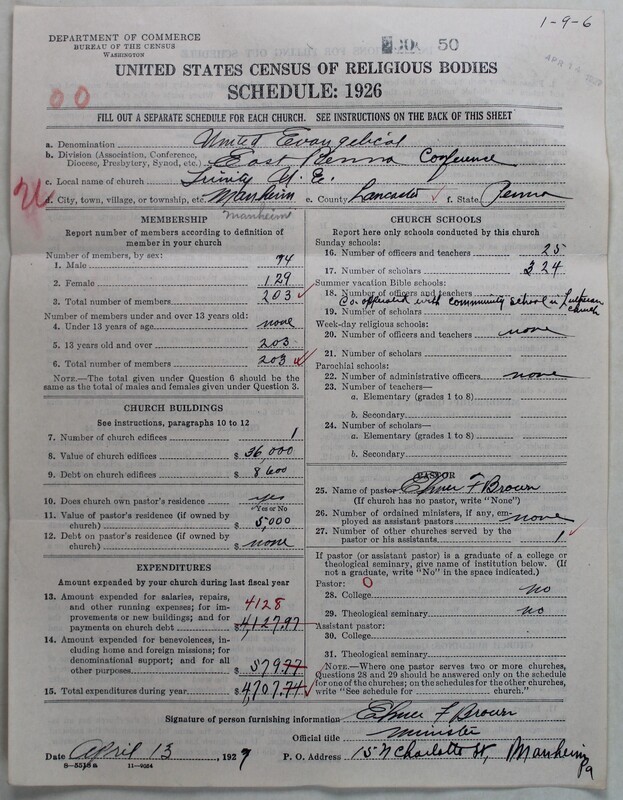 1-9-6
DEPARTMENT OF COMMERCE
BUREAU OF THE CENSUS
WASHINGTON
50
UNITED STATES CENSUS OF RELIGIOUS BODIES
SCHEDULE: 1926
00
FILL OUT A SEPARATE SCHEDULE FOR EACH CHURCH. SEE INSTRUCTIONS ON THE BACK OF THIS SHEET
a. Denomination United Evangelical
b. Division (Association, Conference, Diocese, Presbytery, Synod, etc.) East Penna Conference
c. Local name of church Trinity U. E.
d. City, town, village, or township, etc. Manheim e. County Lancaster f. State Penna
Manheim
MEMBERSHIP
Report number of members according to definition of member in your church
Number of members, by sex:
1. Male 74
2. Female 129
3. Total number of members 203
Number of members under and over 13 years old:
4. Under 13 years of age none
5. 13 years old and over 203
6. Total number of members 203
NOTE.—The total given under Question 6 should be the same as the total of males and females given under Question 3.
CHURCH BUILDINGS
See instructions, paragraphs 10 to 12
7. Number of church edifices 1
8. Value of church edifices $ 36,000
9. Debt on church edifices $ 8600
10. Does church own pastor's residence yes
Yes or No
11. Value of pastor's residence (if owned by church) $ 5,000
12. Debt on pastor's residence (if owned by church) $ none
EXPENDITURES
Amount expended by your church during last fiscal year
13. Amount expended for salaries, repairs, and other running expenses; for improvements or new buildings; and for payments on church debt 4128 $ 4,127.97
14. Amount expended for benevolences, including home and foreign missions; for denominational support; and for all other purposes $ 579.77
15. Total expenditures during year $ 4,707.74
CHURCH SCHOOLS
Report here only schools conducted by this church
Sunday schools:
16. Number of officers and teachers 25
17. Number of scholars 324
Summer vacation Bible schools:
18. Number of officers and teachers
Co. operated with community School in Lutheran church
19. Number of scholars
Week-day religious schools:
20. Number of officers and teachers none
21. Number of scholars
Parochial schools:
22. Number of administrative officers none
23. Number of teachers—
a. Elementary (grades 1 to 8)
b. Secondary
24. Number of scholars—
a. Elementary (grades 1 to 8)
b. Secondary
PASTOR
25. Name of pastor Elmer F Brown
(If church has no pastor, write "None")
26. Number of ordained ministers, if any, employed as assistant pastors none
27. Number of other churches served by the pastor or his assistants 1
If pastor (or assistant pastor) is a graduate of a college or theological seminary, give name of institution below. (If not a graduate, write "No" in the space indicated.)
Pastor: 0
28. College no
29. Theological seminary no
Assistant pastor:
30. College
31. Theological seminary
NOTE.—Where one pastor serves two or more churches, Questions 28 and 29 should be answered only on the schedule for one of the churches; on the schedules for the other churches, write "See schedule for church."
Signature of person furnishing information Elmer F Brown
Official title Minister
Date April 13, 1927 P. O. Address 15 N Charlotte St, Manheim, Pa
8-5518a 11-9054